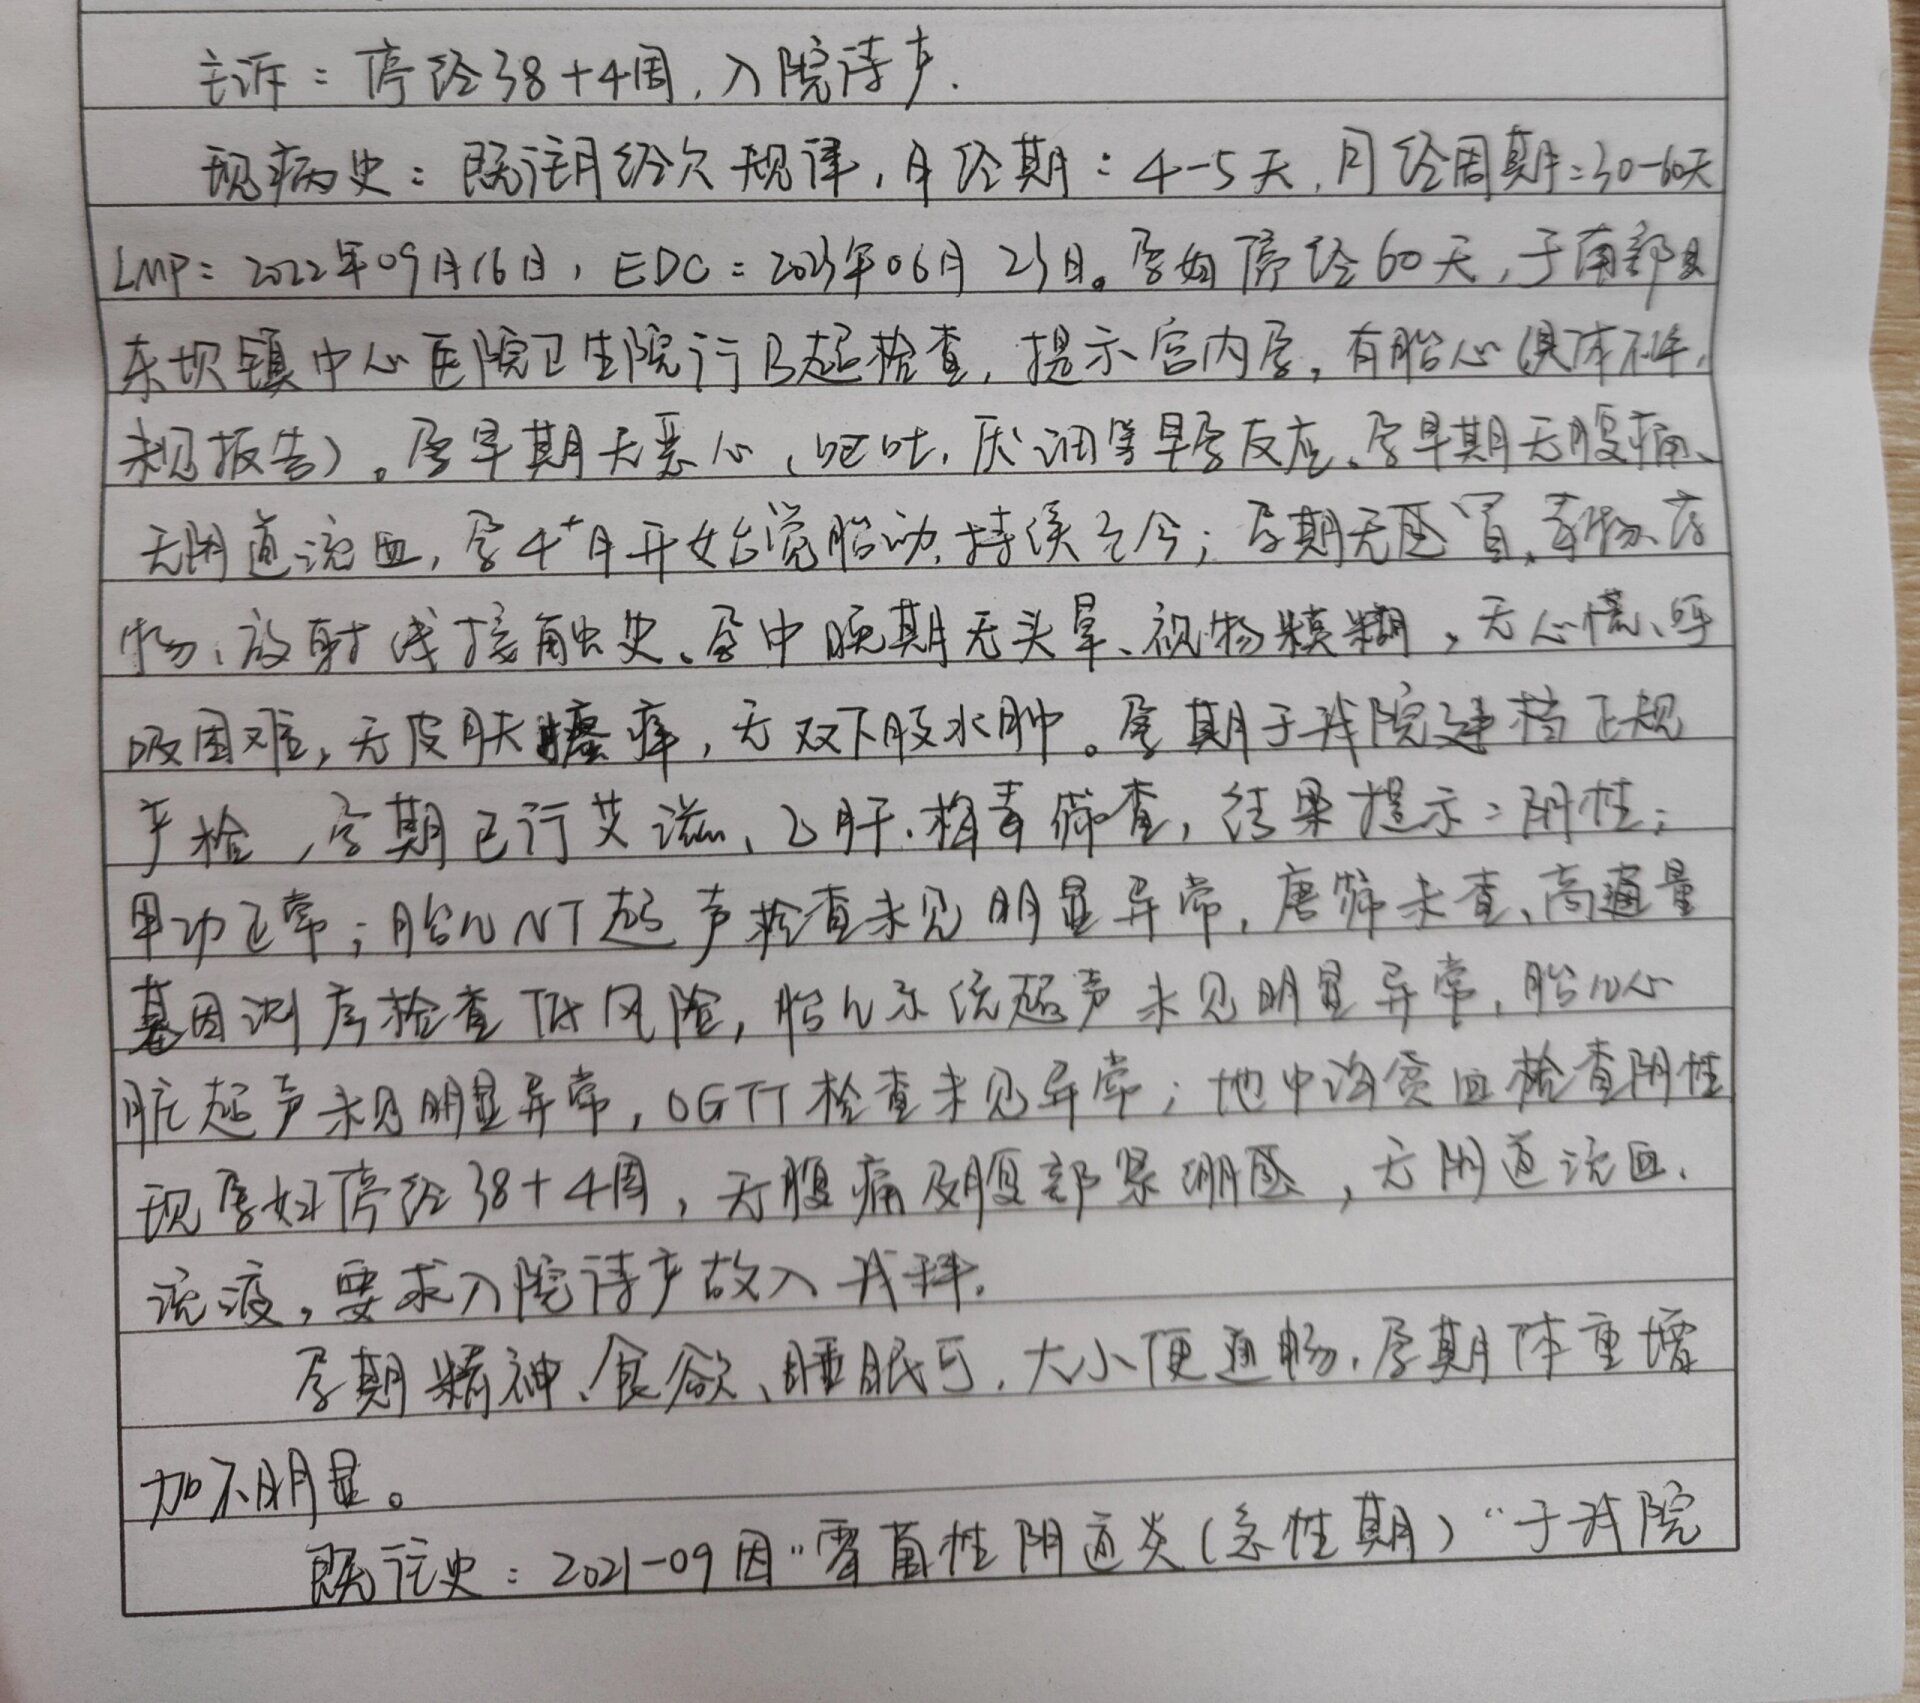 主诉：停经38+4周，入院待产.
现病史：既往月经欠规律，月经期：4-5天，月经周期：30-60天
LMP：2022年09月16日，EDC：2023年06月23日。孕妇停经60天，于南部县
东坝镇中心医院卫生院行B超检查，提示宫内孕，有胎心（具体不详，
未见报告）。孕早期无恶心、呕吐，厌油等早孕反应、孕早期无腹痛、
无阴道流血，孕4⁺月开始觉胎动，持续至今；孕期无感冒、毒物、药
物、放射线接触史、孕中晚期无头晕、视物模糊，无心慌、呼
吸困难，无皮肤瘙痒，无双下肢水肿。孕期于我院建档正规
产检，孕期已行艾滋、乙肝、梅毒筛查，结果提示：阴性；
甲功正常；胎儿NT超声检查未见明显异常，唐筛未查、高通量
基因测序检查低风险，胎儿系统超声未见明显异常，胎儿心
脏超声未见明显异常，OGTT检查未见异常；地中海贫血检查阴性
现孕妇停经38+4周，无腹痛及腹部紧绷感，无阴道流血、
流液，要求入院待产故入我科.
孕期精神、食欲、睡眠可，大小便通畅，孕期体重增
加不明显。
既往史：2021-09因“霉菌性阴道炎（急性期）”于我院